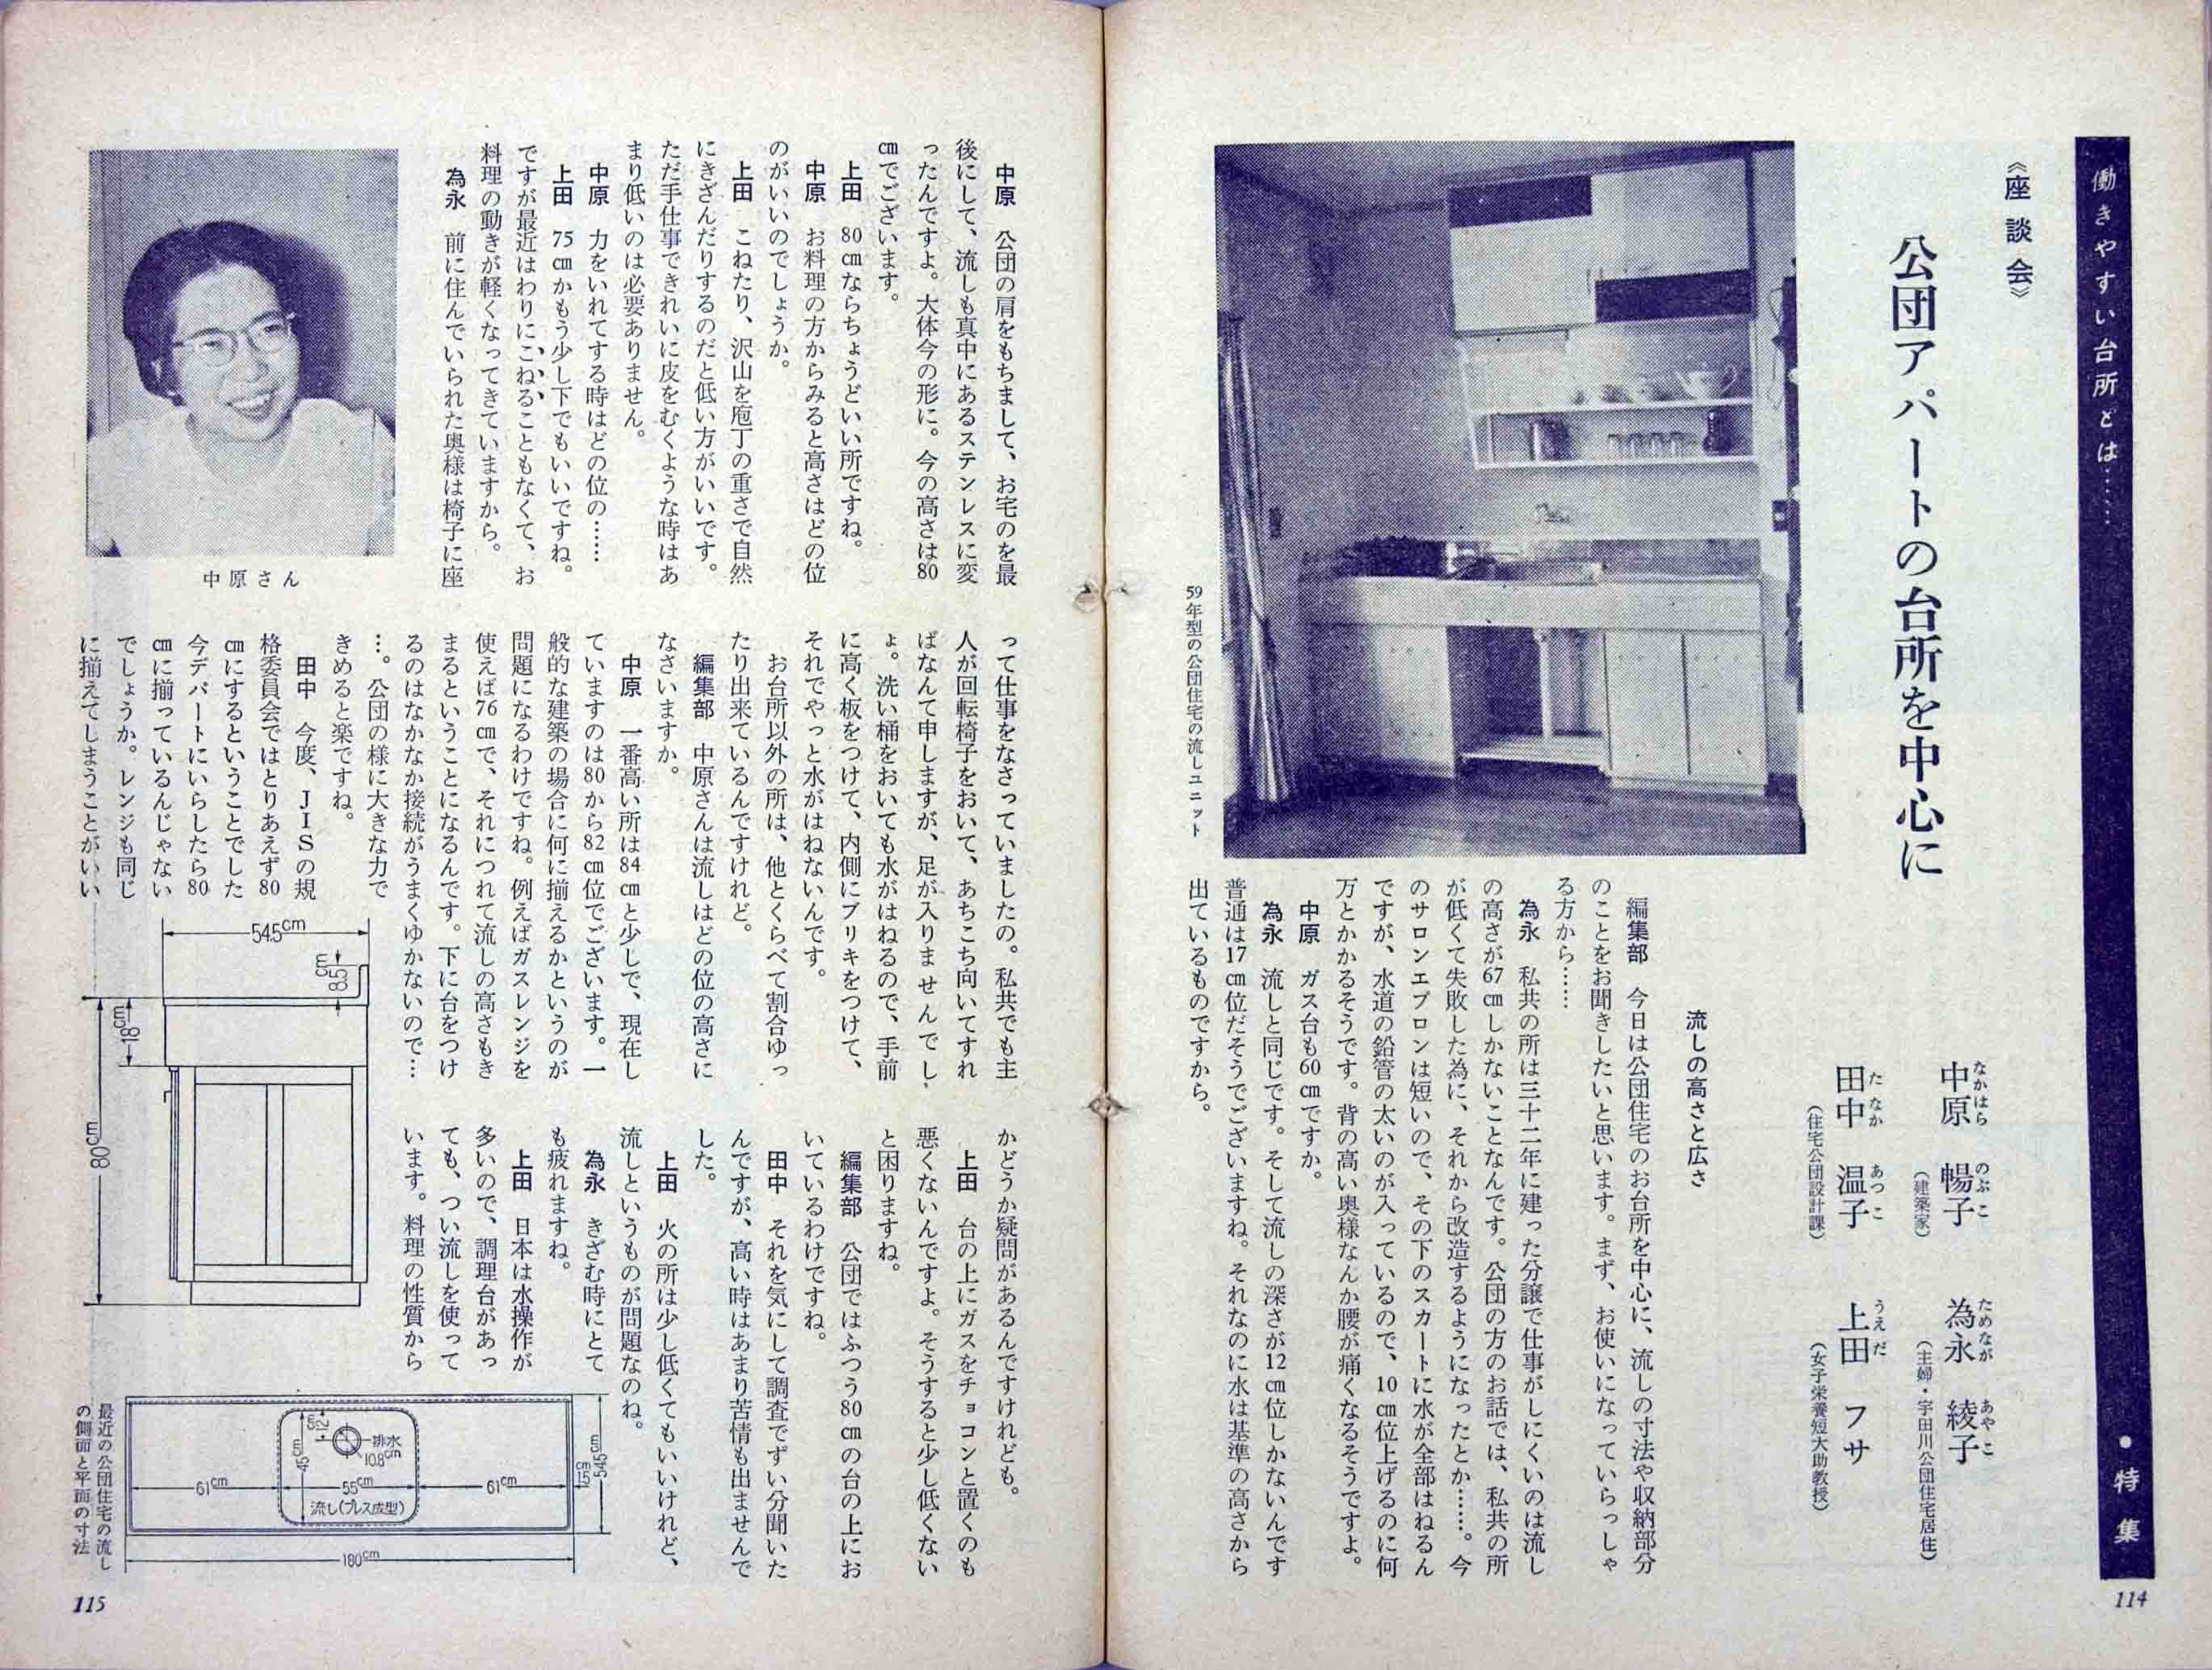 働きやすい台所とは……
●特集
《座談会》
公団アパートの台所を中心に
中原　暢子
なかはら　のぶこ
（建築家）
為永　綾子
ためなが　あやこ
（主婦・宇田川公団住宅居住）
田中　温子
たなか　あつこ
（住宅公団設計課）
上田　フサ
うえだ
（女子栄養短大助教授）
59年型の公団住宅の流しユニット
流しの高さと広さ
編集部　今日は公団住宅のお台所を中心に、流しの寸法や収納部分
のことをお聞きしたいと思います。まず、お使いになっていらっしゃ
る方から……
為永　私共の所は三十二年に建った分譲で仕事がしにくいのは流し
の高さが67cmしかないことなんです。公団の方のお話では、私共の所
が低くて失敗した為に、それから改造するようになったとか……。今
のサロンエプロンは短いので、その下のスカートに水が全部はねるん
ですが、水道の鉛管の太いのが入っているので、10cm位上げるのに何
万とかかるそうです。背の高い奥様なんか腰が痛くなるそうですよ。
中原　ガス台も60cmですか。
為永　流しと同じです。そして流しの深さが12cm位しかないんです
普通は17cm位だそうでございますね。それなのに水は基準の高さから
出ているものですから。
114
中原　公団の肩をもちまして、お宅のを最
後にして、流しも真中にあるステンレスに変
ったんですよ。大体今の形に。今の高さは80
cmでございます。
上田　80cmならちょうどいい所ですね。
中原　お料理の方からみると高さはどの位
のがいいのでしょうか。
上田　こねたり、沢山を庖丁の重さで自然
にきざんだりするのだと低い方がいいです。
ただ手仕事できれいに皮をむくような時はあ
まり低いのは必要ありません。
中原　力をいれてする時はどの位の……
上田　75cmかもう少し下でもいいですね。
ですが最近はわりにこねることもなくて、お
料理の動きが軽くなってきていますから。
為永　前に住んでいられた奥様は椅子に座
中原さん
って仕事をなさっていましたの。私共でも主
人が回転椅子をおいて、あちこち向いてすれ
ばなんて申しますが、足が入りませんでし
ょ。洗い桶をおいても水がはねるので、手前
に高く板をつけて、内側にブリキをつけて、
それでやっと水がはねないんです。
お台所以外の所は、他とくらべて割合ゆっ
たり出来ているんですけれど。
編集部　中原さんは流しはどの位の高さに
なさいますか。
中原　一番高い所は84cmと少しで、現在し
ていますのは80から82cm位でございます。一
般的な建築の場合に何に揃えるかというのが
問題になるわけですね。例えばガスレンジを
使えば76cmで、それにつれて流しの高さもき
まるということになるんです。下に台をつけ
るのはなかなか接続がうまくゆかないので…
…。公団の様に大きな力で
きめると楽ですね。
田中　今度、JISの規
格委員会ではとりあえず80
cmにするということでした
今デパートにいらしたら80
cmに揃っているんじゃない
でしょうか。レンジも同じ
に揃えてしまうことがいい
かどうか疑問があるんですけれども。
上田　台の上にガスをチョコンと置くのも
悪くないんですよ。そうすると少し低くない
と困りますね。
編集部　公団ではふつう80cmの台の上にお
いているわけですね。
田中　それを気にして調査でずい分聞いた
んですが、高い時はあまり苦情も出ませんで
した。
上田　火の所は少し低くてもいいけれど、
流しというものが問題なのね。
為永　きざむ時にとて
も疲れますね。
上田　日本は水操作が
多いので、調理台があっ
ても、つい流しを使って
います。料理の性質から
54.5cm
8.5cm
18cm
80cm
12cm
45cm
排水
10.8cm
61cm
55cm
61cm
流し(プレス成型)
1.5cm
54.5cm
180cm
最近の公団住宅の流し
の側面と平面の寸法
115